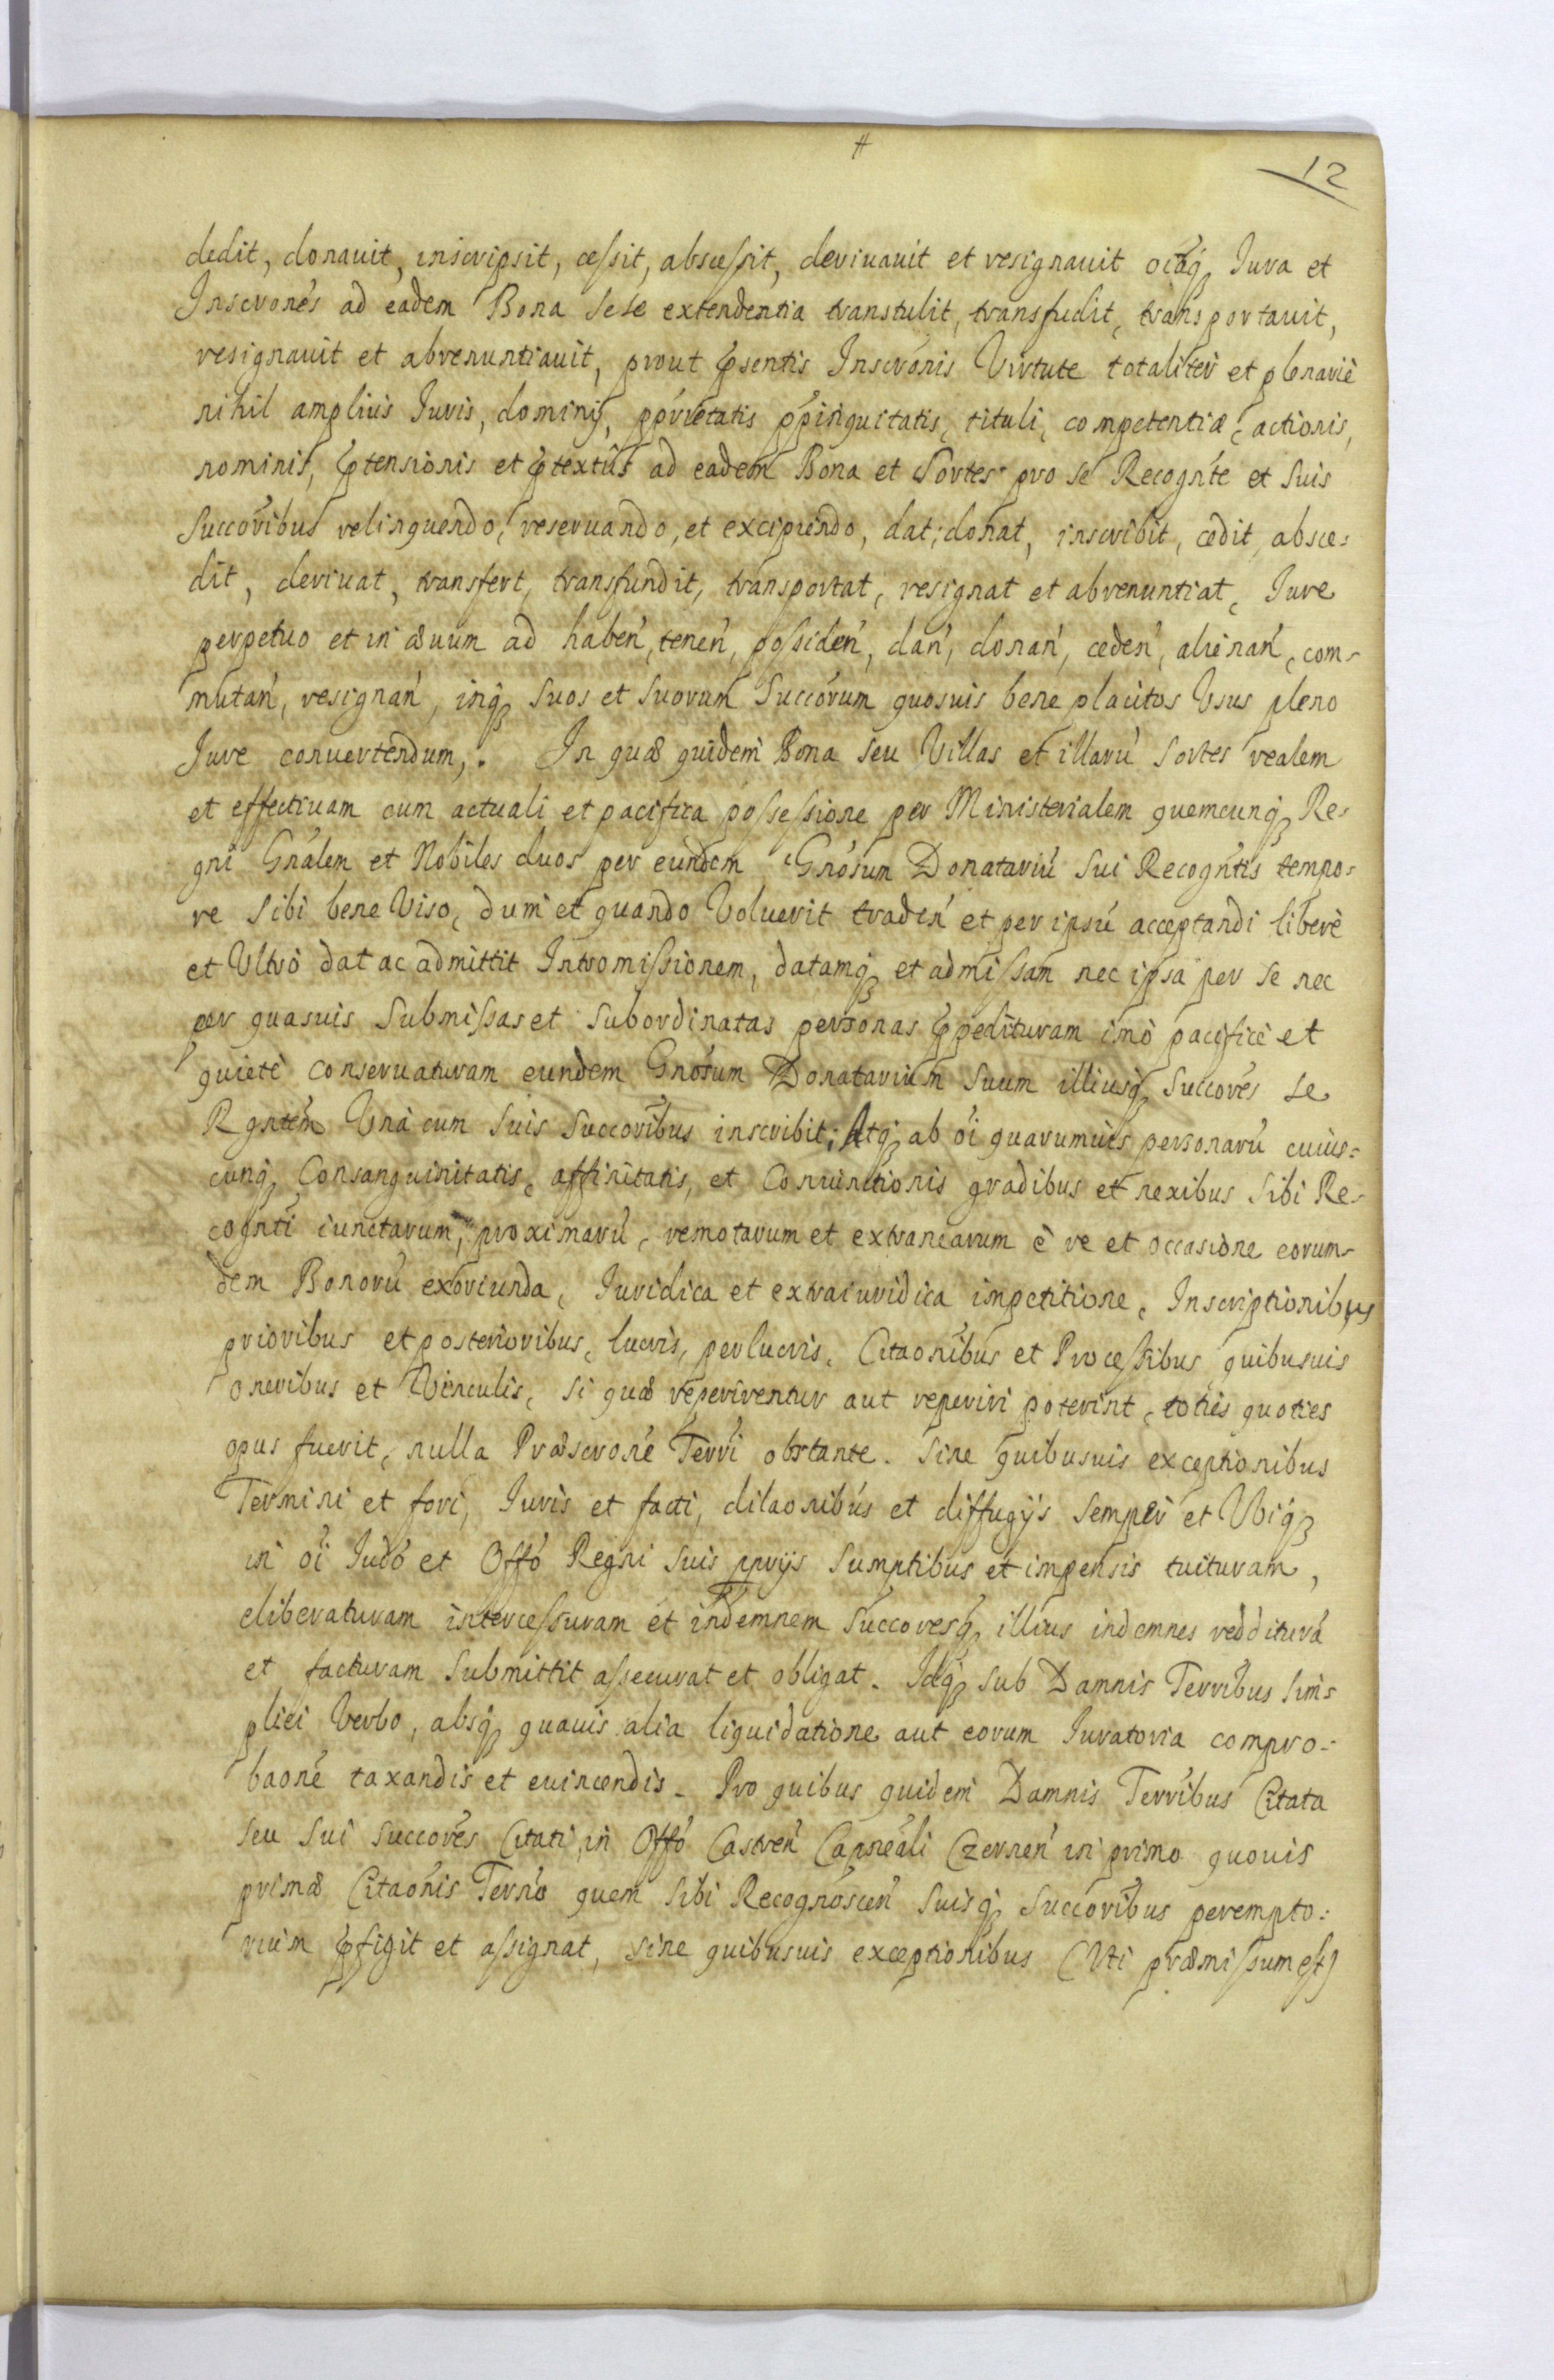 #
12
dedit, donauit, inscripsit, cessit, abscessit, deriuauit et resignauit oiaq3 Iura et
Inscrones ad eadem Bona sese extendentia transtulit, transfudit, transportauit,
resignauit et abrenuntiauit, prout pṡentis Inscronis Virtute totaliter et plenariè
nihil amplius Iuris, dominij, pprietatis ppinquitatis, tituli, competentiæ, actionis,
nominis, ptensionis et ptextûs ad eadem Bona et Sortes pro se Recognte et suis
Succoribus relinquendo, reseruando, et excipiendo, dat, donat, inscribit, cedit, absce=
dit, deriuat, transfert, transfundit, transportat, resignat et abrenuntiat, Iure
perpetuo et in æuum ad haben, tenen, possiden, dan, donan, ceden, alienan, com=
mutan, resignan, inq3 suos et suorum Succorum quosuis bene placitos Vsus pleno
Iure conuertendum,. In quæ quidem Bona seu Villas et illarū sortes realem
et effectiuam cum actuali et pacifica possessione per Ministerialem quemcunq3 Re=
gni Gnalem et Nobiles duos per eundem Gnosum Donatariū sui Recogntis tempo=
re sibi bene Viso, dum et quando Voluerit traden et per ipsū acceptandi liberè
et Vltrò dat ac admittit Intromissionem, datamq3 et admissam nec ipsa per se nec
per quasuis Submissas et Subordinatas personas ppedituram imò pacificè et
quietè conseruaturam eundem Gnosum Donatarium suum illiusq3 Succores se
Rgntem Vnà cum suis Succoribus inscribit; Atq3 ab oi quarumuis personarū cuius=
cunq3 Consanguinitatis, affinitatis, et Coniunctionis gradibus et nexibus sibi Re=
cognti iunctarum, proximarū, remotarum et extranearum è re et occasione eorum=
dem Bonorū exoriunda, Iuridica et extraiuridica impetitione, Inscriptionibus
prioribus et posterioribus, lucris, perlucris, Citaonibus et Processibus, quibusuis
oneribus et Vinculis, si quæ reperirentur aut reperiri poterint, toties quoties
opus fuerit, nulla Præscrone Terri obstante. Sine quibusuis exceptionibus
Termini et fori, Iuris et facti, dilaonibus et diffugijs semper et Vbiq3
in oi Iudo et Offo Regni suis pprijs sumptibus et impensis tuituram,
eliberaturam intercessuram et indemnem Succoresq3 illius indemnes redditurā
et facturam submittit assecurat et obligat. Idq3 sub Damnis Terribus sim=
plici Verbo, absq3 quauis alia liquidatione aut eorum Iuratoria compro=
baone taxandis et euincendis. Pro quibus quidem Damnis Terribus Citata
seu sui succores Citati, in Offo Castren Capneali Czernen in primo quouis
primæ Citaonis Terno quem sibi Recognoscen suisq3 Succoribus perempto=
rium pfigit et assignat, sine quibusuis exceptionibus (Vti præmissum est)